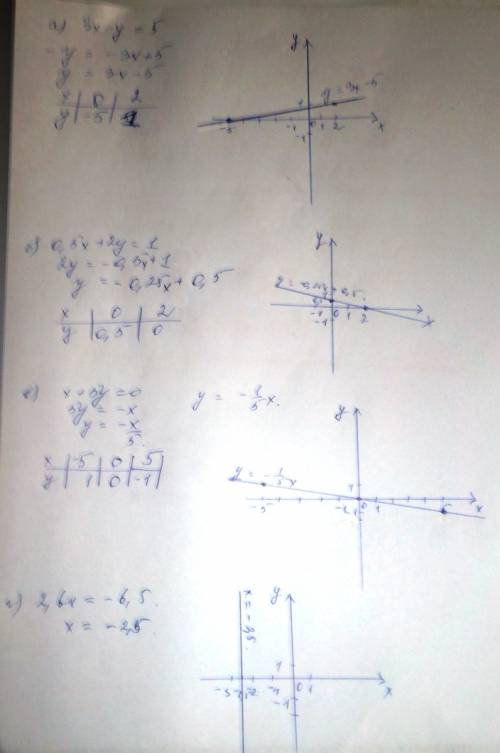 а) 3x - y = 5
-y = -3x+5
y = 3x-5
x | 0 | 2
y | -5 | 1
y
y = 3x-5
1
-5 -1 0 1 2 x
-1
0,5x + 2y = 1
2y = -0,5x+1
y = -0,25x + 0,5
x | 0 | 2
y | 0,5 | 0
y
-1 0 1 2 x
-1
x + 5y = 0
5y = -x
y = -x/5
y = -1/5 x.
x | -5 | 0 | 5
y | 1 | 0 | -1
y
y = -1/5 x
1
-5 -1 0 1 5 x
-1
г) 2,6x = -6,5.
x = -2,5.
x = -2,5.
y
1
-3 -2 -1 0 1 x
-1